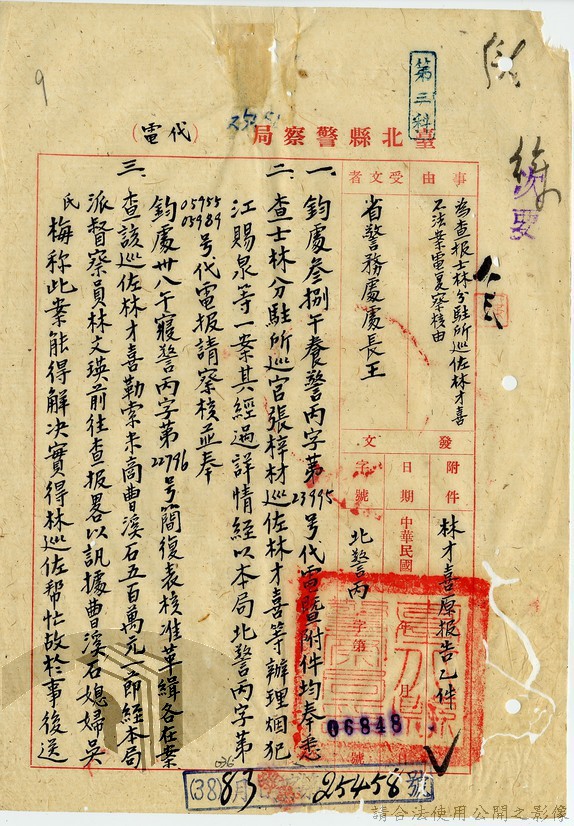 第三科
臺北縣警察局
(代電)
事由
為查报士林分駐所巡佐林才喜
不法案電复察核由
受文者
省警務處處長王
發文
附件
林才喜原报告乙件
日期
中華民國 年 月 日
字號
北警丙 字第 06848 號
一、鈞處叁捌午養警丙字第23995號代電暨附件均奉悉
二、查士林分駐所巡官張梓材巡佐林才喜等辦理烟犯
江賜泉等一案其經過詳情經以本局北警丙字第
05955
05989
號代電报請察核並奉
鈞處卅八午寢警丙字第22796號簡復表核准革緝各在案
三、查該巡佐林才喜勒索米商曹溪石五百萬元一節經本局
派督察員林文瑛前往查报畧以訊據曹溪石媳婦吳
氏梅称此案能得解决實得林巡佐帮忙故於事後送
(38) 8月3 25458 號
9
請合法使用公開之影像